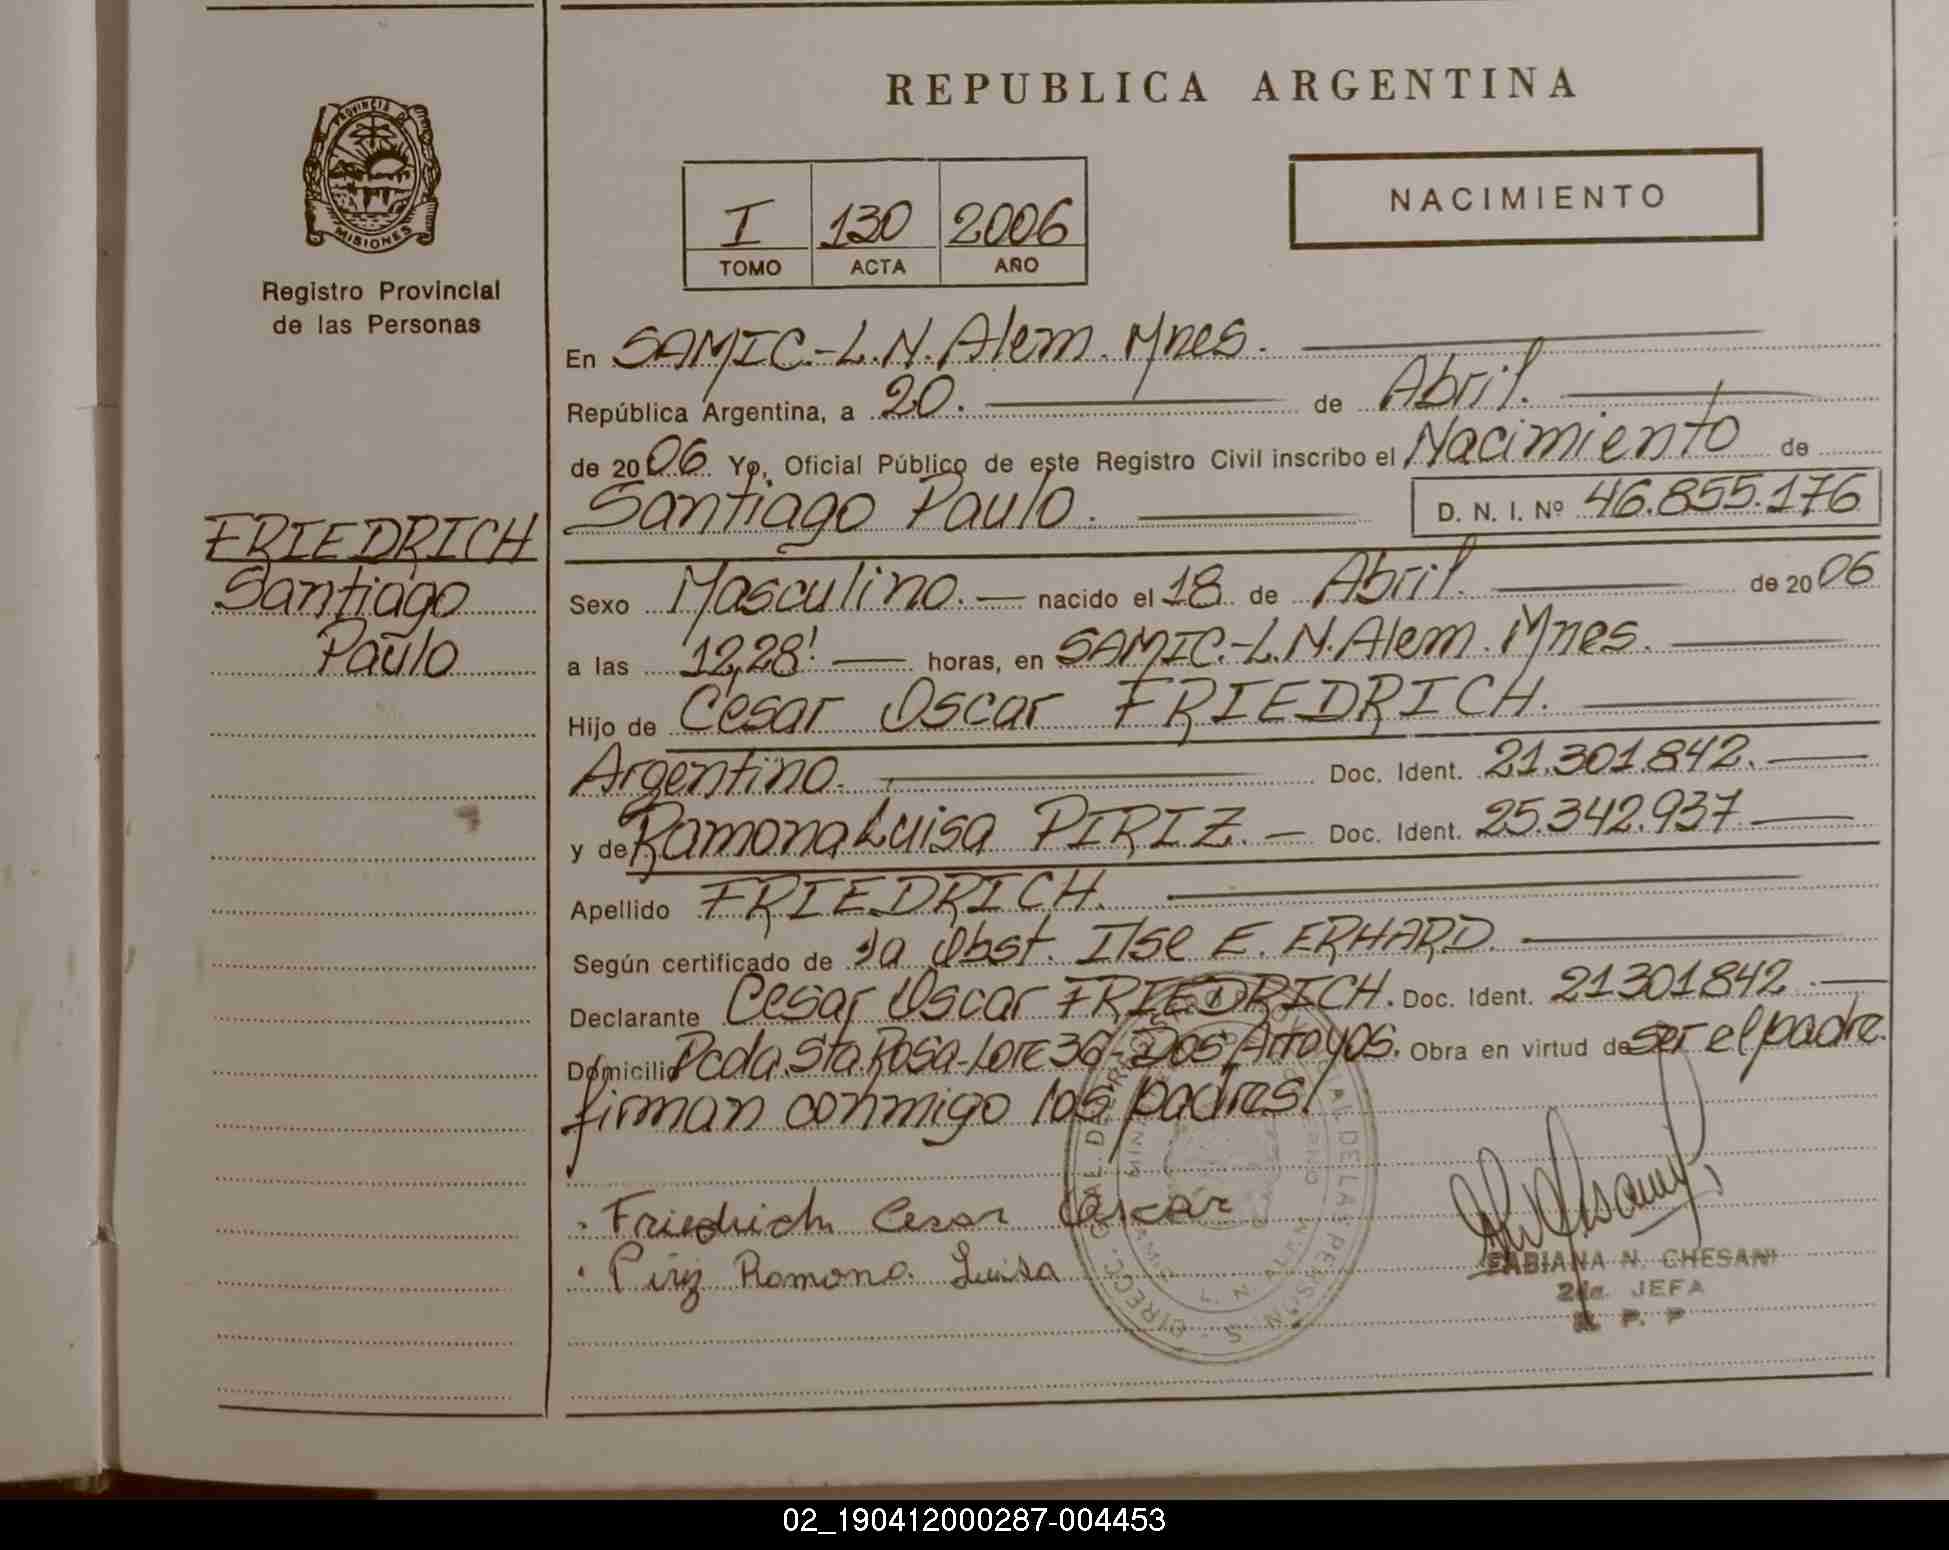 REPUBLICA ARGENTINA
PROVINCIA DE
MISIONES
Registro Provincial
de las Personas
I 130 2006
TOMO ACTA AÑO
NACIMIENTO
En SAMIC.-L.N.Alem. Mnes.
República Argentina, a 20. de Abril.
de 2006 Yo, Oficial Público de este Registro Civil inscribo el Nacimiento de
Santiago Paulo. D. N. I. Nº 46.855.176
FRIEDRICH
Santiago
Paulo
Sexo Masculino. nacido el 18 de Abril. de 2006
a las 12,28' horas, en SAMIC.-L.N.Alem. Mnes.
Hijo de Cesar Oscar FRIEDRICH.
Argentino. Doc. Ident. 21.301.842.
y de Ramona Luisa PIRIZ. Doc. Ident. 25.342.937
Apellido FRIEDRICH.
Según certificado de la Obst. Ilse E. ERHARD.
Declarante Cesar Oscar FRIEDRICH. Doc. Ident. 21301842.
Domicilio Pcda.Sta.Rosa-Lote 36-Dos Arroyos. Obra en virtud de ser el padre.
firman conmigo los padres.
Friedrich Cesar Oscar
Piriz Ramona Luisa
FABIANA N. CHESANI
2da. JEFA
R. P. P
02_190412000287-004453